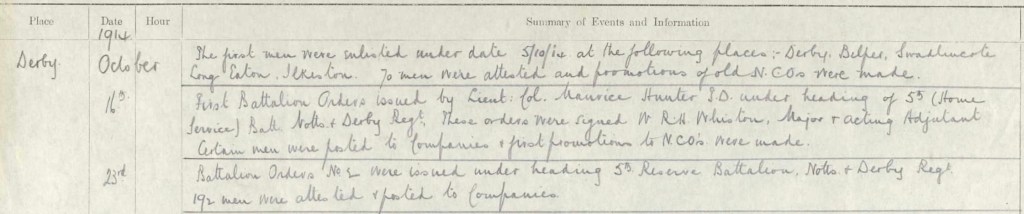 Place Date Hour Summary of Events and Information
1914
Derby. October The first men were enlisted under date 5/10/14 at the following places:- Derby, Belper, Swadlincote
Long Eaton, Ilkeston. 70 men were attested and promotions of old N.C.Os were made.
16th First Battalion Orders issued by Lieut: Col. Maurice Hunter T.D. under heading of 5th (Home
Service) Batt Notts. & Derby Regt. These orders were signed W R H Whiston, Major & acting Adjutant
Certain men were posted to Companies & first promotions to N.C.O's were made.
23rd Battalion Orders No 2 were issued under heading 5th Reserve Battalion, Notts. & Derby Regt.
192 men were attested & posted to Companies.